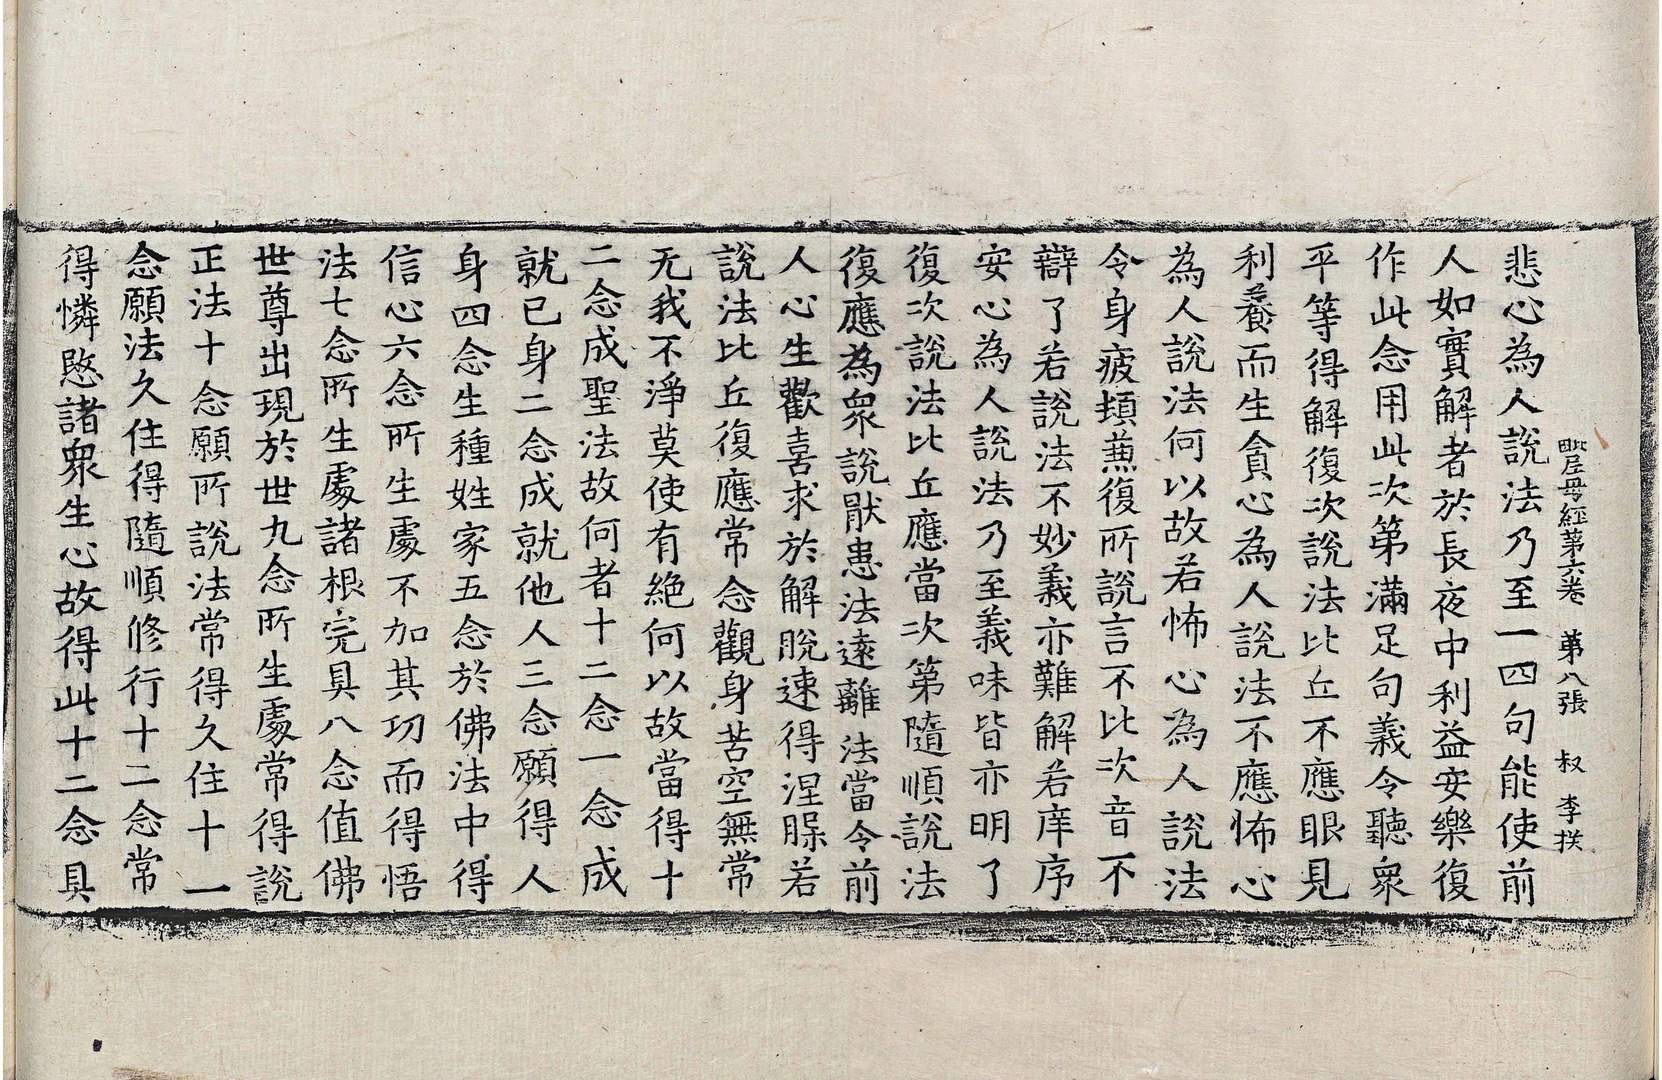 毗尼母經第六卷　第八張　叔　李揆
悲心為人說法乃至一四句能使前
人如實解者於長夜中利益安樂復
作此念用此次第滿足句義令聽衆
平等得解復次說法比丘不應眼見
利養而生貪心為人說法不應怖心
為人說法何以故若怖心為人說法
令身疲頓兼復所說言不比次音不
辯了若說法不妙義亦難解若庠序
安心為人說法乃至義味皆亦明了
復次說法比丘應當次第隨順說法
復應為衆說猒患法遠離法當令前
人心生歡喜求於解脫速得涅槃若
說法比丘復應常念觀身苦空無常
无我不淨莫使有絕何以故當得十
二念成聖法故何者十二念一念成
就已身二念成就他人三念願得人
身四念生種姓家五念於佛法中得
信心六念所生處不加其功而得悟
法七念所生處諸根完具八念值佛
世尊出現於世九念所生處常得說
正法十念願所說法常得久住十一
念願法久住得隨順修行十二念常
得憐愍諸衆生心故得此十二念具